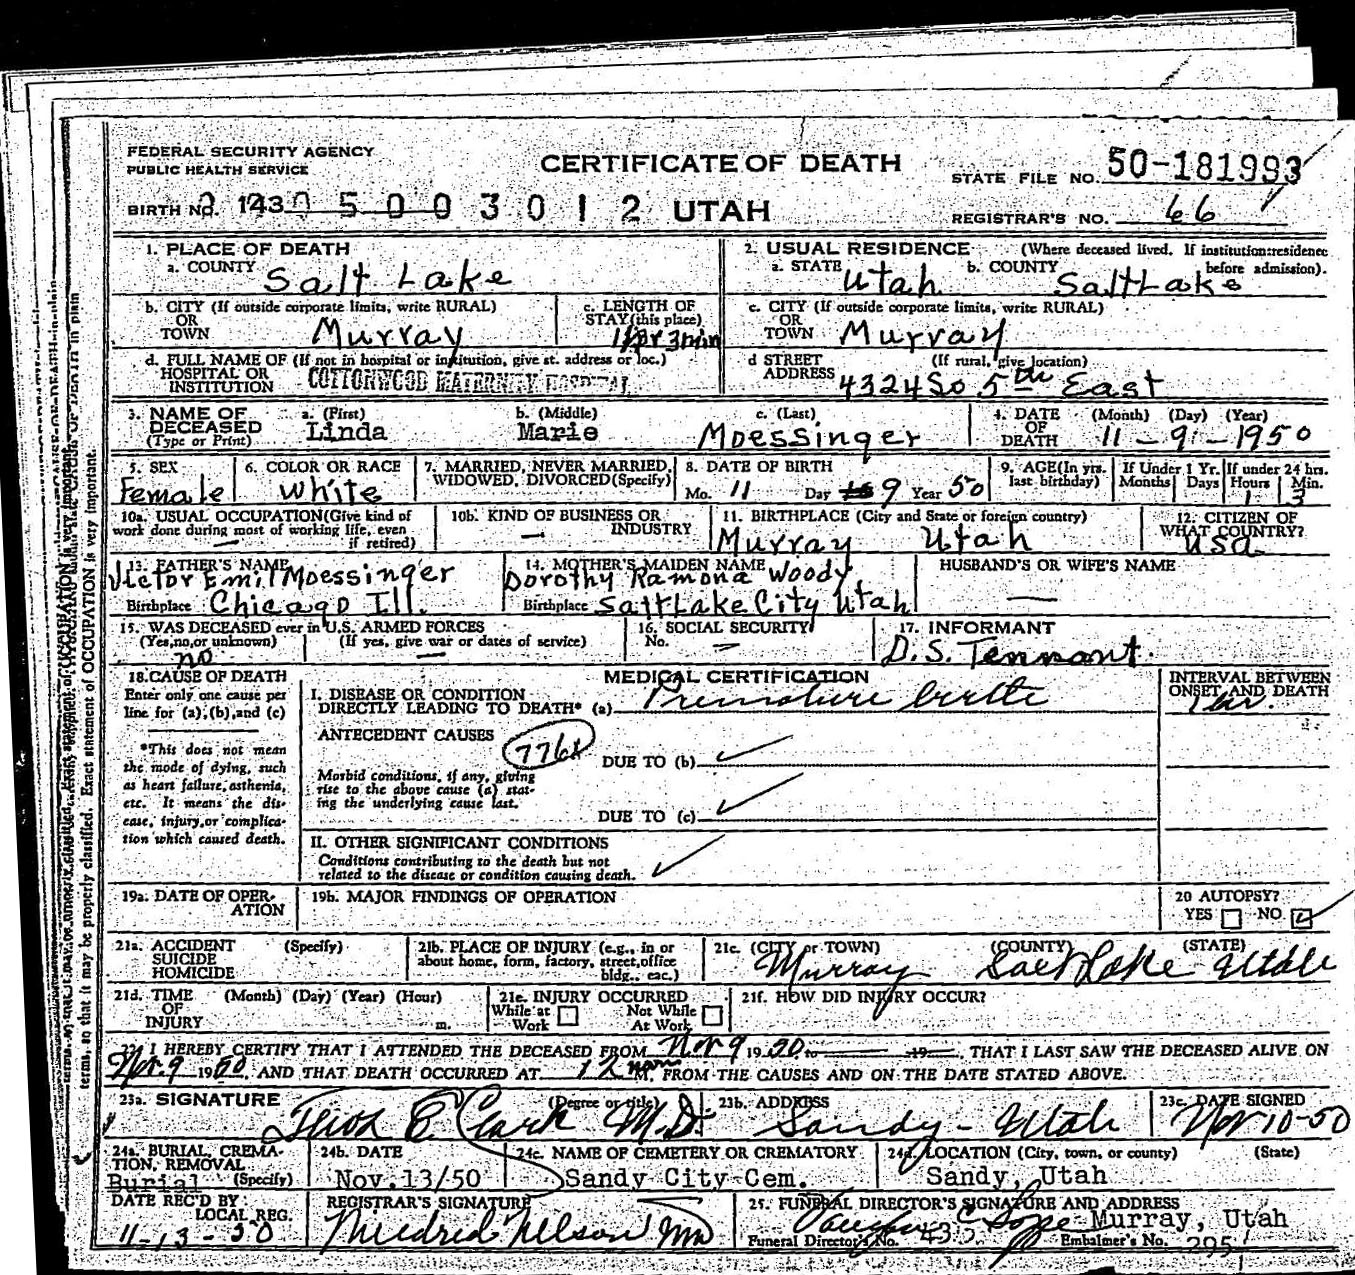 FEDERAL SECURITY AGENCY
PUBLIC HEALTH SERVICE
CERTIFICATE OF DEATH
STATE FILE NO. 50-181993
BIRTH NO. 143 0 5 0 0 3 0 1 2 UTAH
REGISTRAR'S NO. 66
1. PLACE OF DEATH
a. COUNTY Salt Lake
2. USUAL RESIDENCE (Where deceased lived. If institution: residence before admission).
a. STATE Utah b. COUNTY Salt Lake
b. CITY (If outside corporate limits, write RURAL)
OR
TOWN Murray
c. LENGTH OF
STAY (this place)
1 hr 3 min
c. CITY (If outside corporate limits, write RURAL)
OR
TOWN Murray
d. FULL NAME OF (If not in hospital or institution, give st. address or loc.)
HOSPITAL OR
INSTITUTION COTTONWOOD MATERNITY HOSPITAL
d STREET (If rural, give location)
ADDRESS 4324 So 5th East
3. NAME OF DECEASED (Type or Print)
a. (First) Linda
b. (Middle) Marie
c. (Last) Moessinger
4. DATE OF DEATH (Month) (Day) (Year)
11-9-1950
5. SEX
Female
6. COLOR OR RACE
White
7. MARRIED, NEVER MARRIED,
WIDOWED, DIVORCED (Specify)
8. DATE OF BIRTH
Mo. 11 Day 9 Year 50
9. AGE (In yrs. last birthday)
If Under 1 Yr. Months Days
If under 24 hrs. Hours Min.
1 3
10a. USUAL OCCUPATION (Give kind of
work done during most of working life, even
if retired) —
10b. KIND OF BUSINESS OR
INDUSTRY —
11. BIRTHPLACE (City and State or foreign country)
Murray Utah
12. CITIZEN OF
WHAT COUNTRY?
USA
13. FATHER'S NAME
Victor Emil Moessinger
Birthplace Chicago Ill.
14. MOTHER'S MAIDEN NAME
Dorothy Ramona Woody
Birthplace Salt Lake City Utah
HUSBAND'S OR WIFE'S NAME
—
15. WAS DECEASED ever in U.S. ARMED FORCES
(Yes, no, or unknown) (If yes, give war or dates of service)
no —
16. SOCIAL SECURITY
No. —
17. INFORMANT
D. S. Tennant.
18. CAUSE OF DEATH
Enter only one cause per
line for (a), (b), and (c)
*This does not mean
the mode of dying, such
as heart failure, asthenia,
etc. It means the dis-
ease, injury, or complica-
tion which caused death.
MEDICAL CERTIFICATION
I. DISEASE OR CONDITION
DIRECTLY LEADING TO DEATH* (a) Premature birth
INTERVAL BETWEEN
ONSET AND DEATH
1 hr.
ANTECEDENT CAUSES
DUE TO (b)
Morbid conditions, if any, giving
rise to the above cause (a) stat-
ing the underlying cause last.
DUE TO (c)
II. OTHER SIGNIFICANT CONDITIONS
Conditions contributing to the death but not
related to the disease or condition causing death.
19a. DATE OF OPER-
ATION
19b. MAJOR FINDINGS OF OPERATION
20 AUTOPSY?
YES NO
21a. ACCIDENT (Specify)
SUICIDE
HOMICIDE
21b. PLACE OF INJURY (e.g., in or
about home, form, factory, street, office
bldg., eac.)
21c. (CITY or TOWN) (COUNTY) (STATE)
Murray Salt Lake Utah
21d. TIME (Month) (Day) (Year) (Hour)
OF
INJURY m.
21e. INJURY OCCURRED
While at Work Not While At Work
21f. HOW DID INJURY OCCUR?
22. I HEREBY CERTIFY THAT I ATTENDED THE DECEASED FROM Nov 9 1950 to 19 , THAT I LAST SAW THE DECEASED ALIVE ON
Nov. 9 1950, AND THAT DEATH OCCURRED AT 12 noon M. FROM THE CAUSES AND ON THE DATE STATED ABOVE.
23a. SIGNATURE (Degree or title)
Thos E. Clark M.D.
23b. ADDRESS
Sandy - Utah
23c. DATE SIGNED
Nov 10-50
24a. BURIAL, CREMA-
TION, REMOVAL
Burial (Specify)
24b. DATE
Nov.13/50
24c. NAME OF CEMETERY OR CREMATORY
Sandy City Cem.
24d. LOCATION (City, town, or county) (State)
Sandy, Utah
DATE REC'D BY
LOCAL REG.
11-13-50
REGISTRAR'S SIGNATURE
Mildred Nelson
25. FUNERAL DIRECTOR'S SIGNATURE AND ADDRESS
Murray, Utah
Funeral Director's No. 435 Embalmer's No. 295
terms, so that it may be properly classified. Exact statement of OCCUPATION is very important.